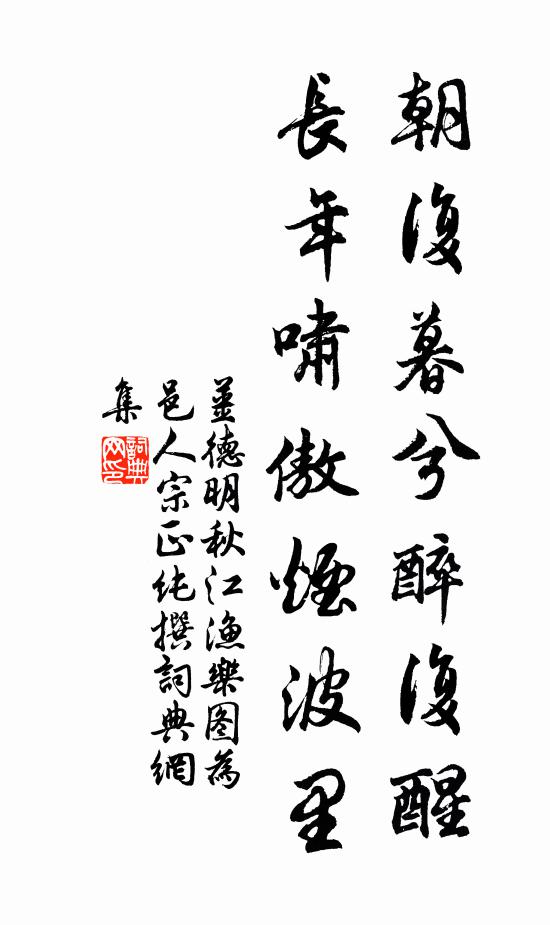 朝復暮兮醉復醒
長年嘯傲煙波里
姜德明秋江漁樂图為
邑人宗正纯撰詞典網
集
詞典网